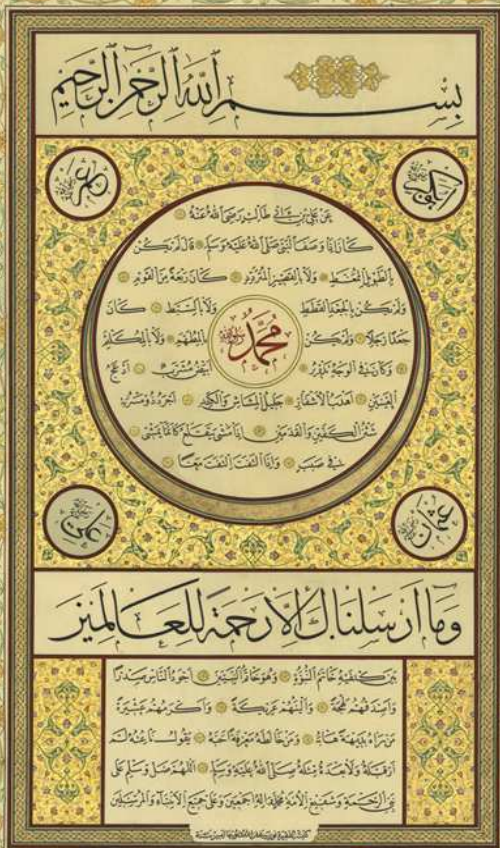 بِسْمِ اللَّهِ الرَّحْمَنِ الرَّحِيمِ
أبو بكر
عمر
عن علي بن أبي طالب رضي الله عنه
كان إذا وصف النبي صلى الله عليه وسلم قال لم يكن
بالطويل الممغط ولا بالقصير المتردد كان ربعة من القوم
ولم يكن بالجعد القطط ولا بالسبط كان
جعدا رجلا ولم يكن بالمطهم ولا بالمكلثم
محمد
وكان في الوجه تدوير أبيض مشرب أدعج
العينين أهدب الأشفار جليل المشاش والكتد أجرد ذو مسربة
شثن الكفين والقدمين إذا مشى يتقلع كأنما يمشي
في صبب وإذا التفت التفت معا
عثمان
علي
وما أرسلناك إلا رحمة للعالمين
بين كتفيه خاتم النبوة وهو خاتم النبيين أجود الناس صدرا
وأصدقهم لهجة وألينهم عريكة وأكرمهم عشيرة
من رآه بديهة هابه ومن خالطه معرفة أحبه يقول ناعته لم
أر قبله ولا بعده مثله صلى الله عليه وسلم اللهم صل وسلم على
نبي الرحمة وشفيع الأمة محمد وآله أجمعين وعلى جميع الأنبياء والمرسلين